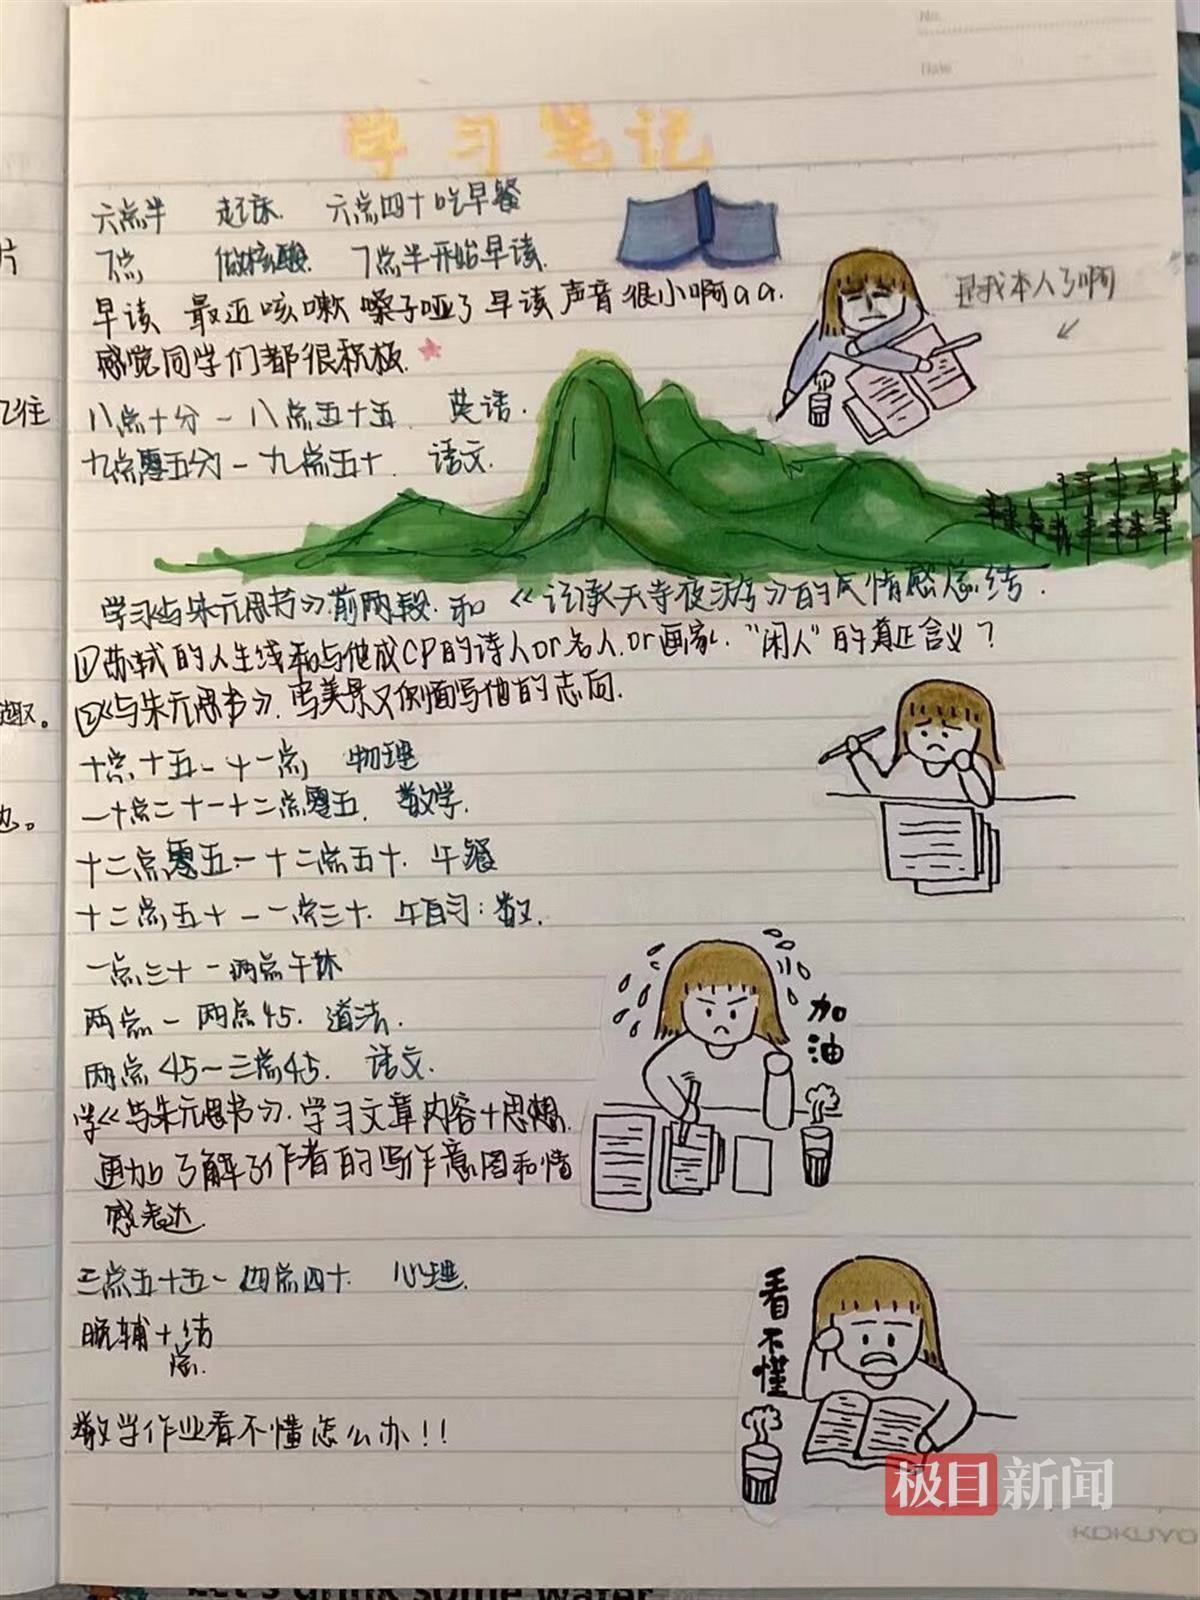 No.
Date
学习笔记
六点半 起床 六点四十吃早餐
7点 做核酸 7点半开始早读.
早读 最近咳嗽 嗓子哑了早读声音很小啊aa.
感觉同学们都很积极.
是我本人了啊
八点十分-八点五十五 英语.
九点零五分-九点五十. 语文.
学习《与朱元思书》前两段.和《记承天寺夜游》的 情感总结.
①苏轼的人生线和与他成CP的诗人or名人.or画家."闲人"的真正含义?
②《与朱元思书》.写美景又侧面写他的志向.
十点十五-十一点 物理
一十点二十一十二点零五. 数学.
十二点零五-十二点五十. 午餐
十二点五十-一点三十. 午自习:数.
一点三十-两点午休
两点-两点45. 道法.
两点45-三点45. 语文.
学《与朱元思书》.学习文章内容+思想.
更加了解了作者的写作意图和情
感表达.
加油
三点五十五-四点四十. 心理.
晚辅+结
总.
看不懂
数学作业看不懂怎么办!!
极目新闻
KOKUYO
Let's drink some water
片
飞往
趣。
边。